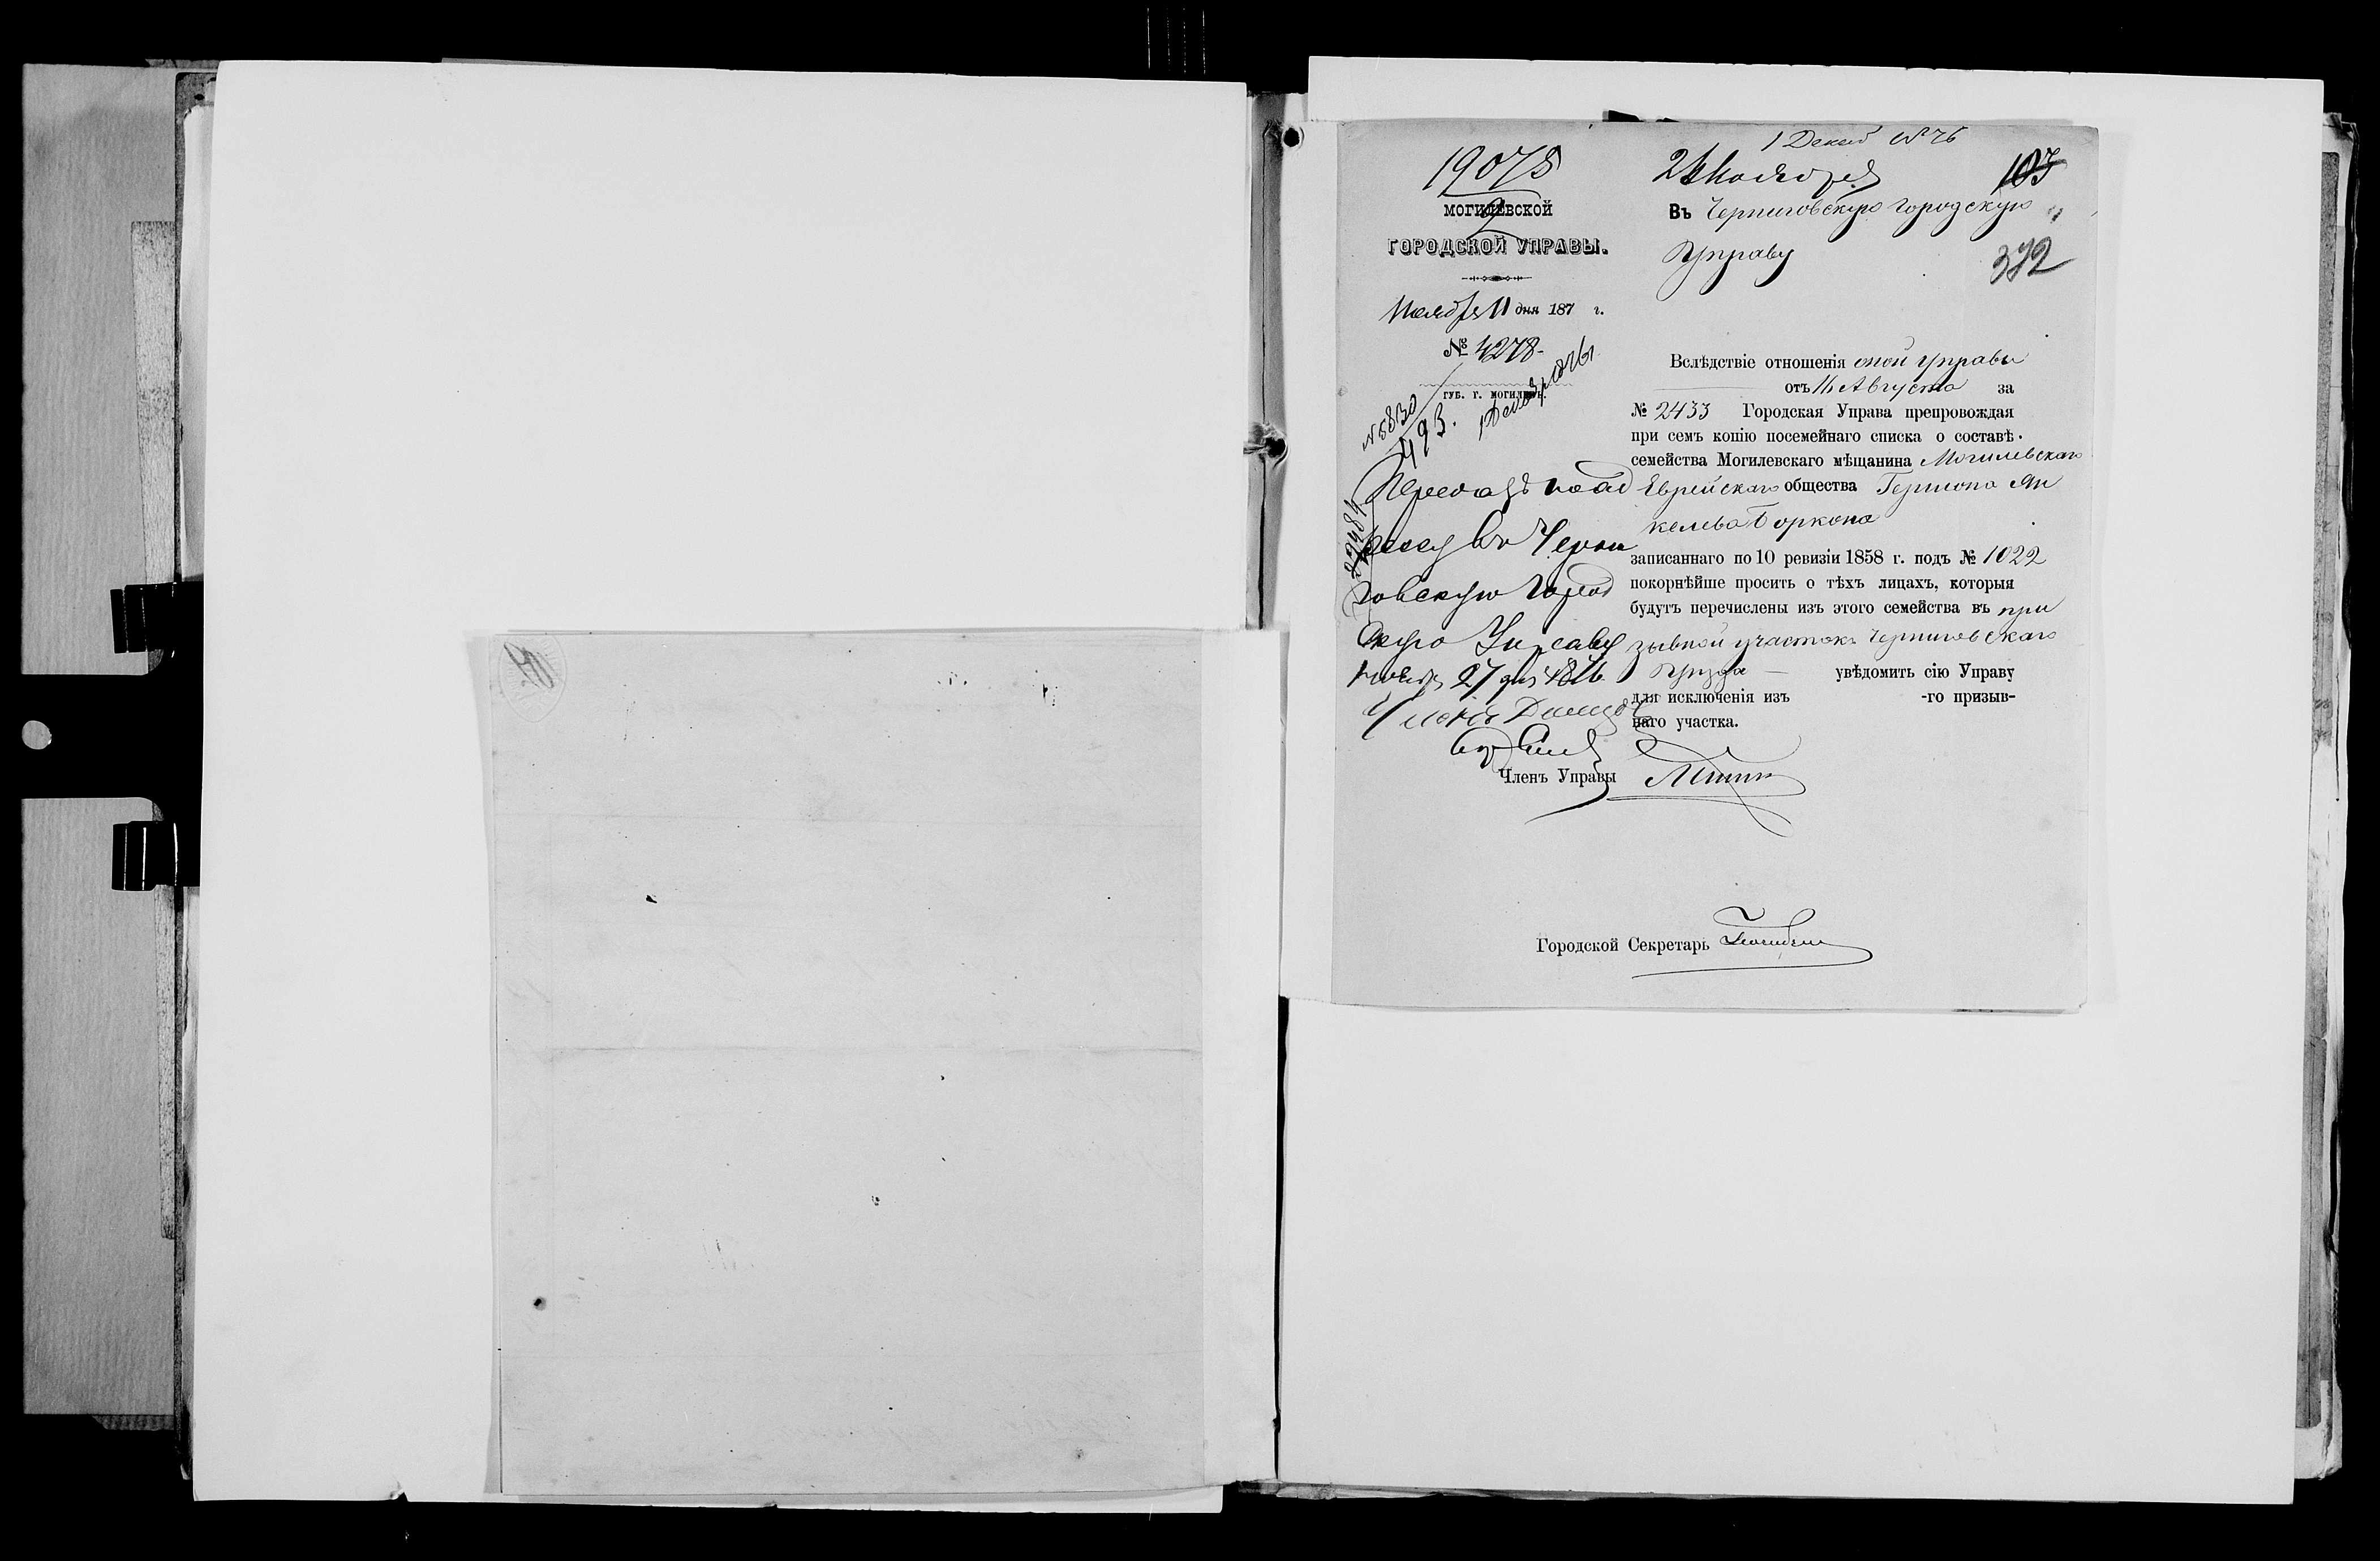 1 Декаб 1876
19078
2
24 Ноября
103
МОГИЛЕВСКОЙ
ГОРОДСКОЙ УПРАВЫ.
Въ Черниговскую городскую
Управу
372
Ноября 11 дня 187 г.
№ 4278.
ГУБ. Г. МОГИЛЕВЪ.
№ 5830
493.
1 Декабр 1876 г.
Вслѣдствіе отношенія оной управы
отъ 16 Августа за
№ 2433 Городская Управа препровождая
при семъ копію посемейнаго списка о составѣ
семейства Могилевскаго мѣщанина Могилевскаго
Еврейскаго общества Гершона Ян
келева Боркона
записаннаго по 10 ревизіи 1858 г. подъ № 1022
покорнѣйше просить о тѣхъ лицахъ, которыя
будутъ перечислены изъ этого семейства въ при
зывной участокъ Черниговскаго
Уѣзда — увѣдомить сію Управу
для исключенія изъ -го призыв-
наго участка.
въ Черни
говскую Город
скую Управу
Ноября 27 дня 1876
Членъ Управы
Городской Секретарь